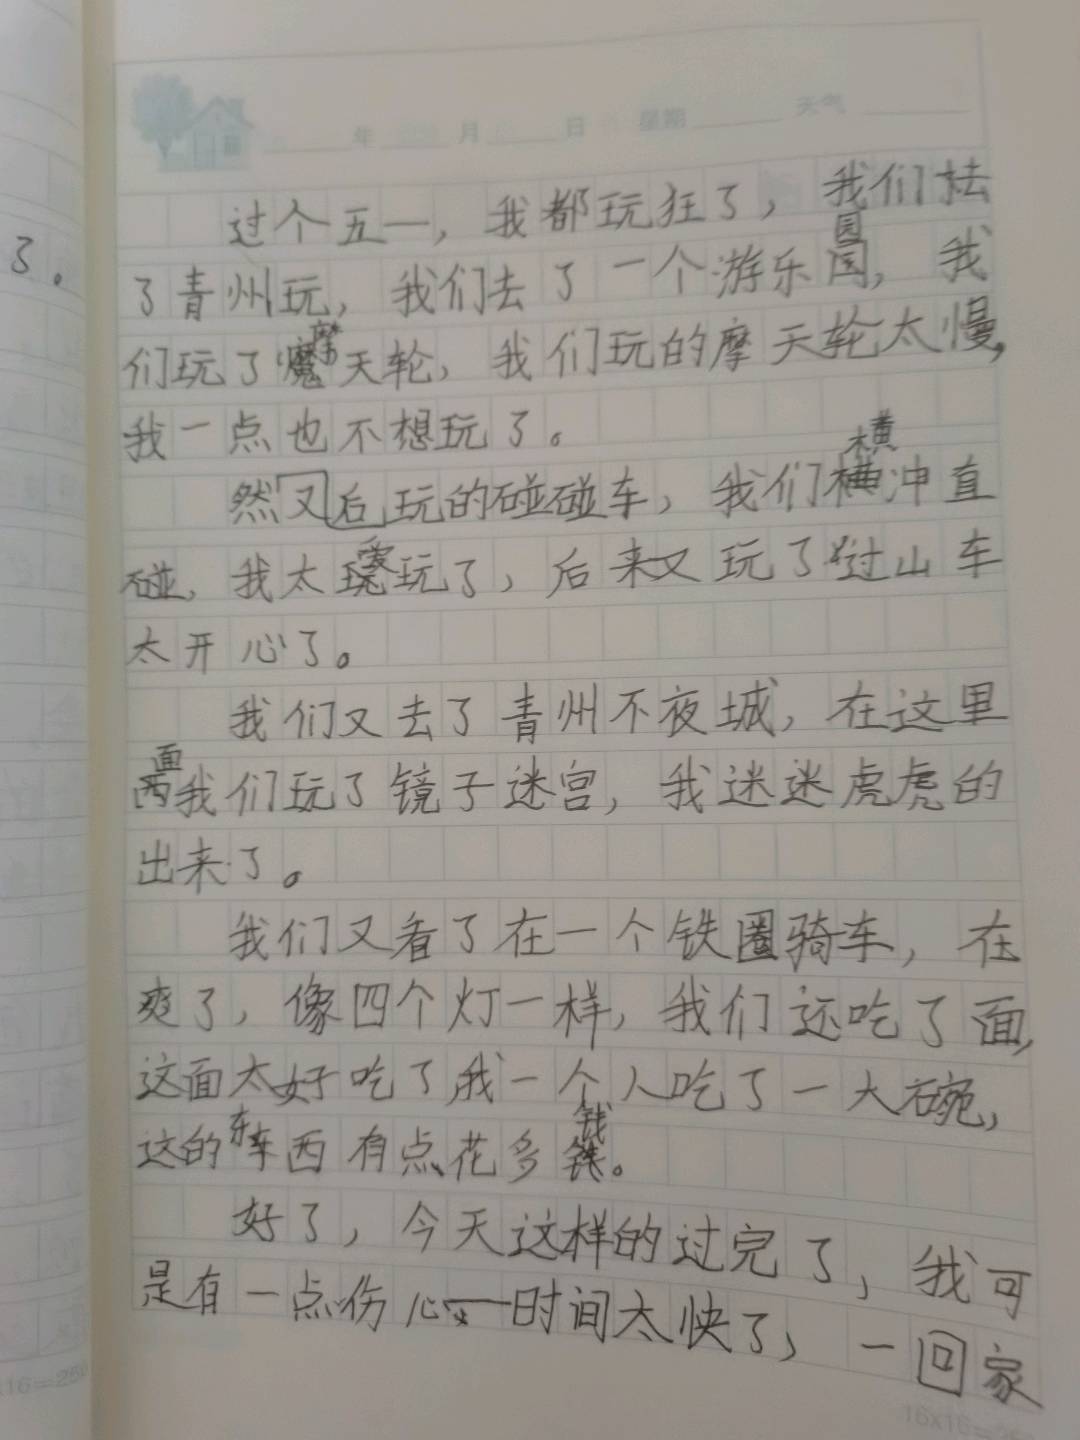 了。
年 月 日 星期 天气
过个五一,我都玩狂了,我们去
了青州玩,我们去了一个游乐园,我
们玩了摩天轮,我们玩的摩天轮太慢,
我一点也不想玩了。
然后又玩的碰碰车,我们横冲直
碰,我太爱玩了,后来又玩了过山车
太开心了。
我们又去了青州不夜城,在这里
面我们玩了镜子迷宫,我迷迷虎虎的
出来了。
我们又看了在一个铁圈骑车,在
爽了,像四个灯一样,我们还吃了面,
这面太好吃了我一个人吃了一大碗,
这的东西有点花多钱。
好了,今天这样的过完了,我可
是有一点伤心一时间太快了,一回家
16x16=256